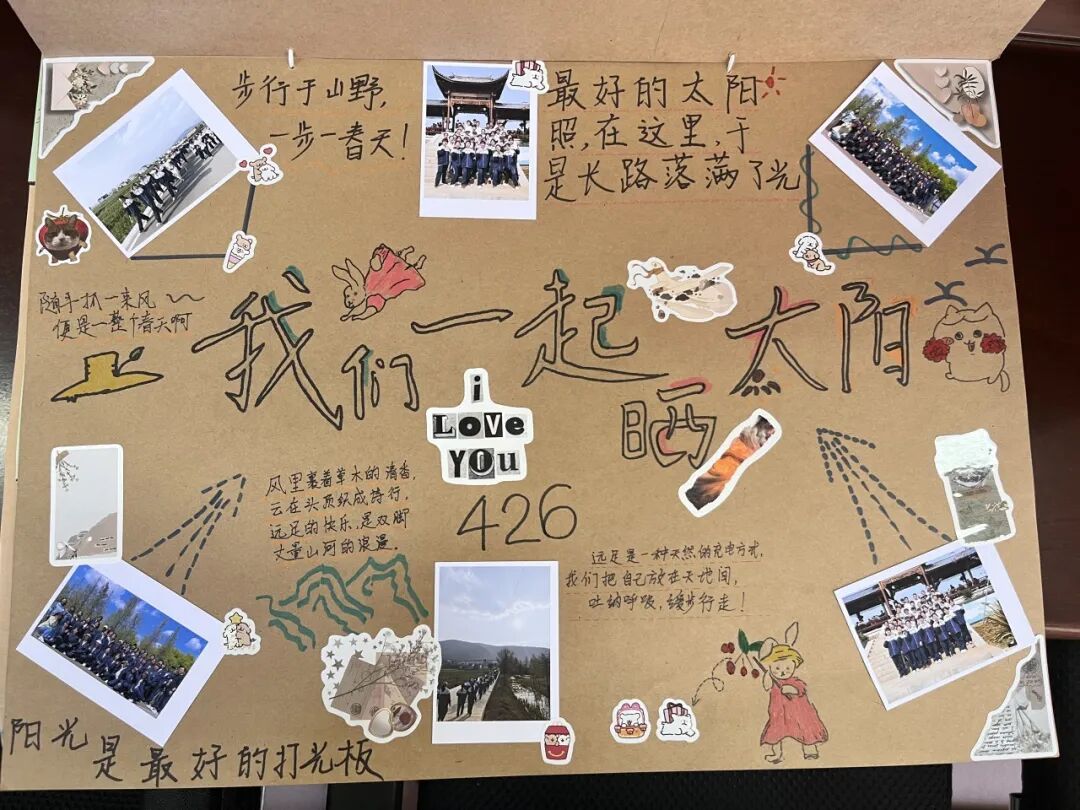 步行于山野，
一步一春天！
最好的太阳
照，在这里，于
是长路落满了光
随手抓一朵风
便是一整个春天啊
我们一起晒太阳
i
LOVe
YOU
426
风里裹着草木的清香，
云在头顶织成诗行，
远足的快乐，是双脚
丈量山河的浪漫。
远足是一种天然的充电方式，
我们把自己放在天地间，
吐纳呼吸，缓步行走！
阳光是最好的打光板